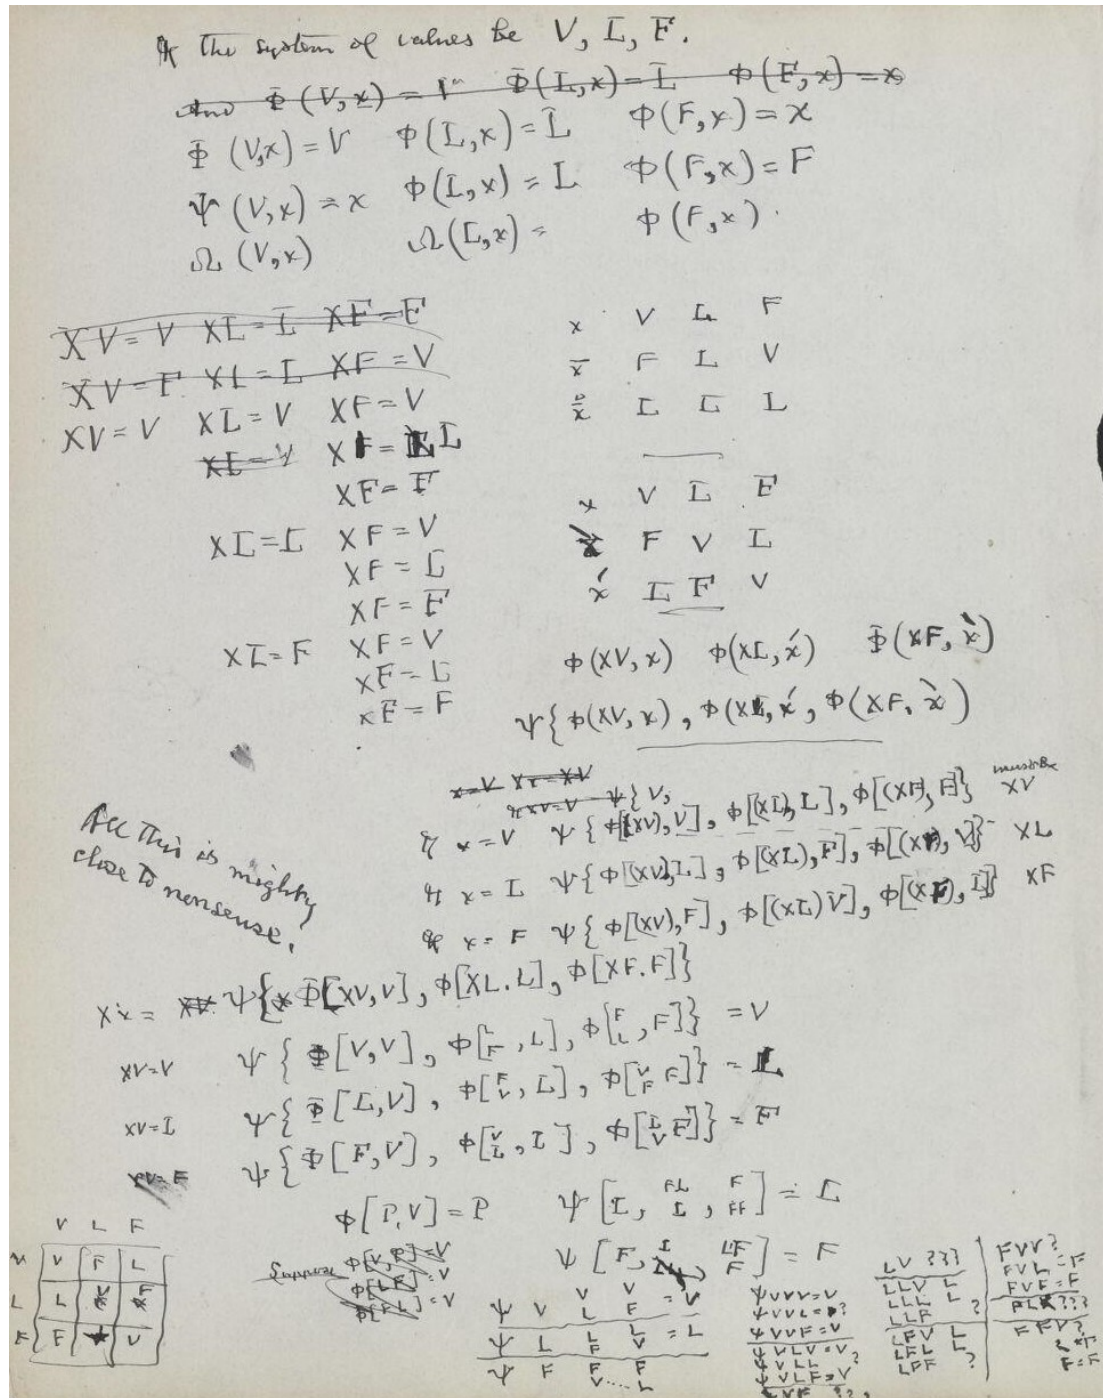 If the system of values be V, L, F.
And Φ(V,x) = V Φ(L,x) = L Φ(F,x) = x
Φ (V,x) = V Φ(L,x) = L Φ(F,x) = x
Ψ (V,x) = x Φ(L,x) = L Φ(F,x) = F
Ω (V,x) Ω(L,x) = Φ(F,x).
XV = V XL = L XF = F
XV = F XL = L XF = V
XV = V XL = V XF = V
XL = V XF = L
XF = F
XL = L XF = V
XF = L
XF = F
XL = F XF = V
XF = L
XF = F
x V L F
x̄ F L V
x L L L
x V L F
x̀ F V L
x́ L F V
Φ(XV, x) Φ(XL, x́) Φ(XF, x̀)
Ψ{Φ(XV, x), Φ(XL, x́, Φ(XF, x̀)
x=V Xx=XV
If XV=V Ψ{V,
If x = V Ψ{Φ[(XV),V], Φ[(XL),L], Φ[(XF),F]} must be XV
If x = L Ψ{Φ[(XV),L], Φ[(XL),F], Φ[(XF),V]} XL
If x = F Ψ{Φ[(XV),F], Φ[(XL)V], Φ[(XF),L]} XF
All this is mighty
close to nonsense.
Xx = XV Ψ{Φ[XV,V], Φ[XL.L], Φ[XF.F]}
XV=V Ψ{Φ[V,V], Φ[L F, L], Φ[F L, F]} = V
XV=L Ψ{Φ[L,V], Φ[F V, L], Φ[V F F]} = L
XV=F Ψ{Φ[F,V], Φ[V L, L], Φ[L V F]} = F
Φ[P,V] = P Ψ[L, FL L, F FF] = L
Ψ[F, LF F] = F
Suppose Φ[V,P]=V
Φ[LF]=V
Φ[FL]=V
V L F
V V F L
L L
F F V
V V = V
Ψ V L F
Ψ L L L V = L
Ψ F F F
V .... L
ΨVVV=V
ΨVVL=?
ΨVVF=V
ΨVLV=V
ΨVLL ?
ΨVLF=V
LV ???
LLV L
LLL L
LLF ?
LFV L
LFL L
LFF ?
FVV ?
FVL=F
FVF=F
FL ???
FFV ?
F=F